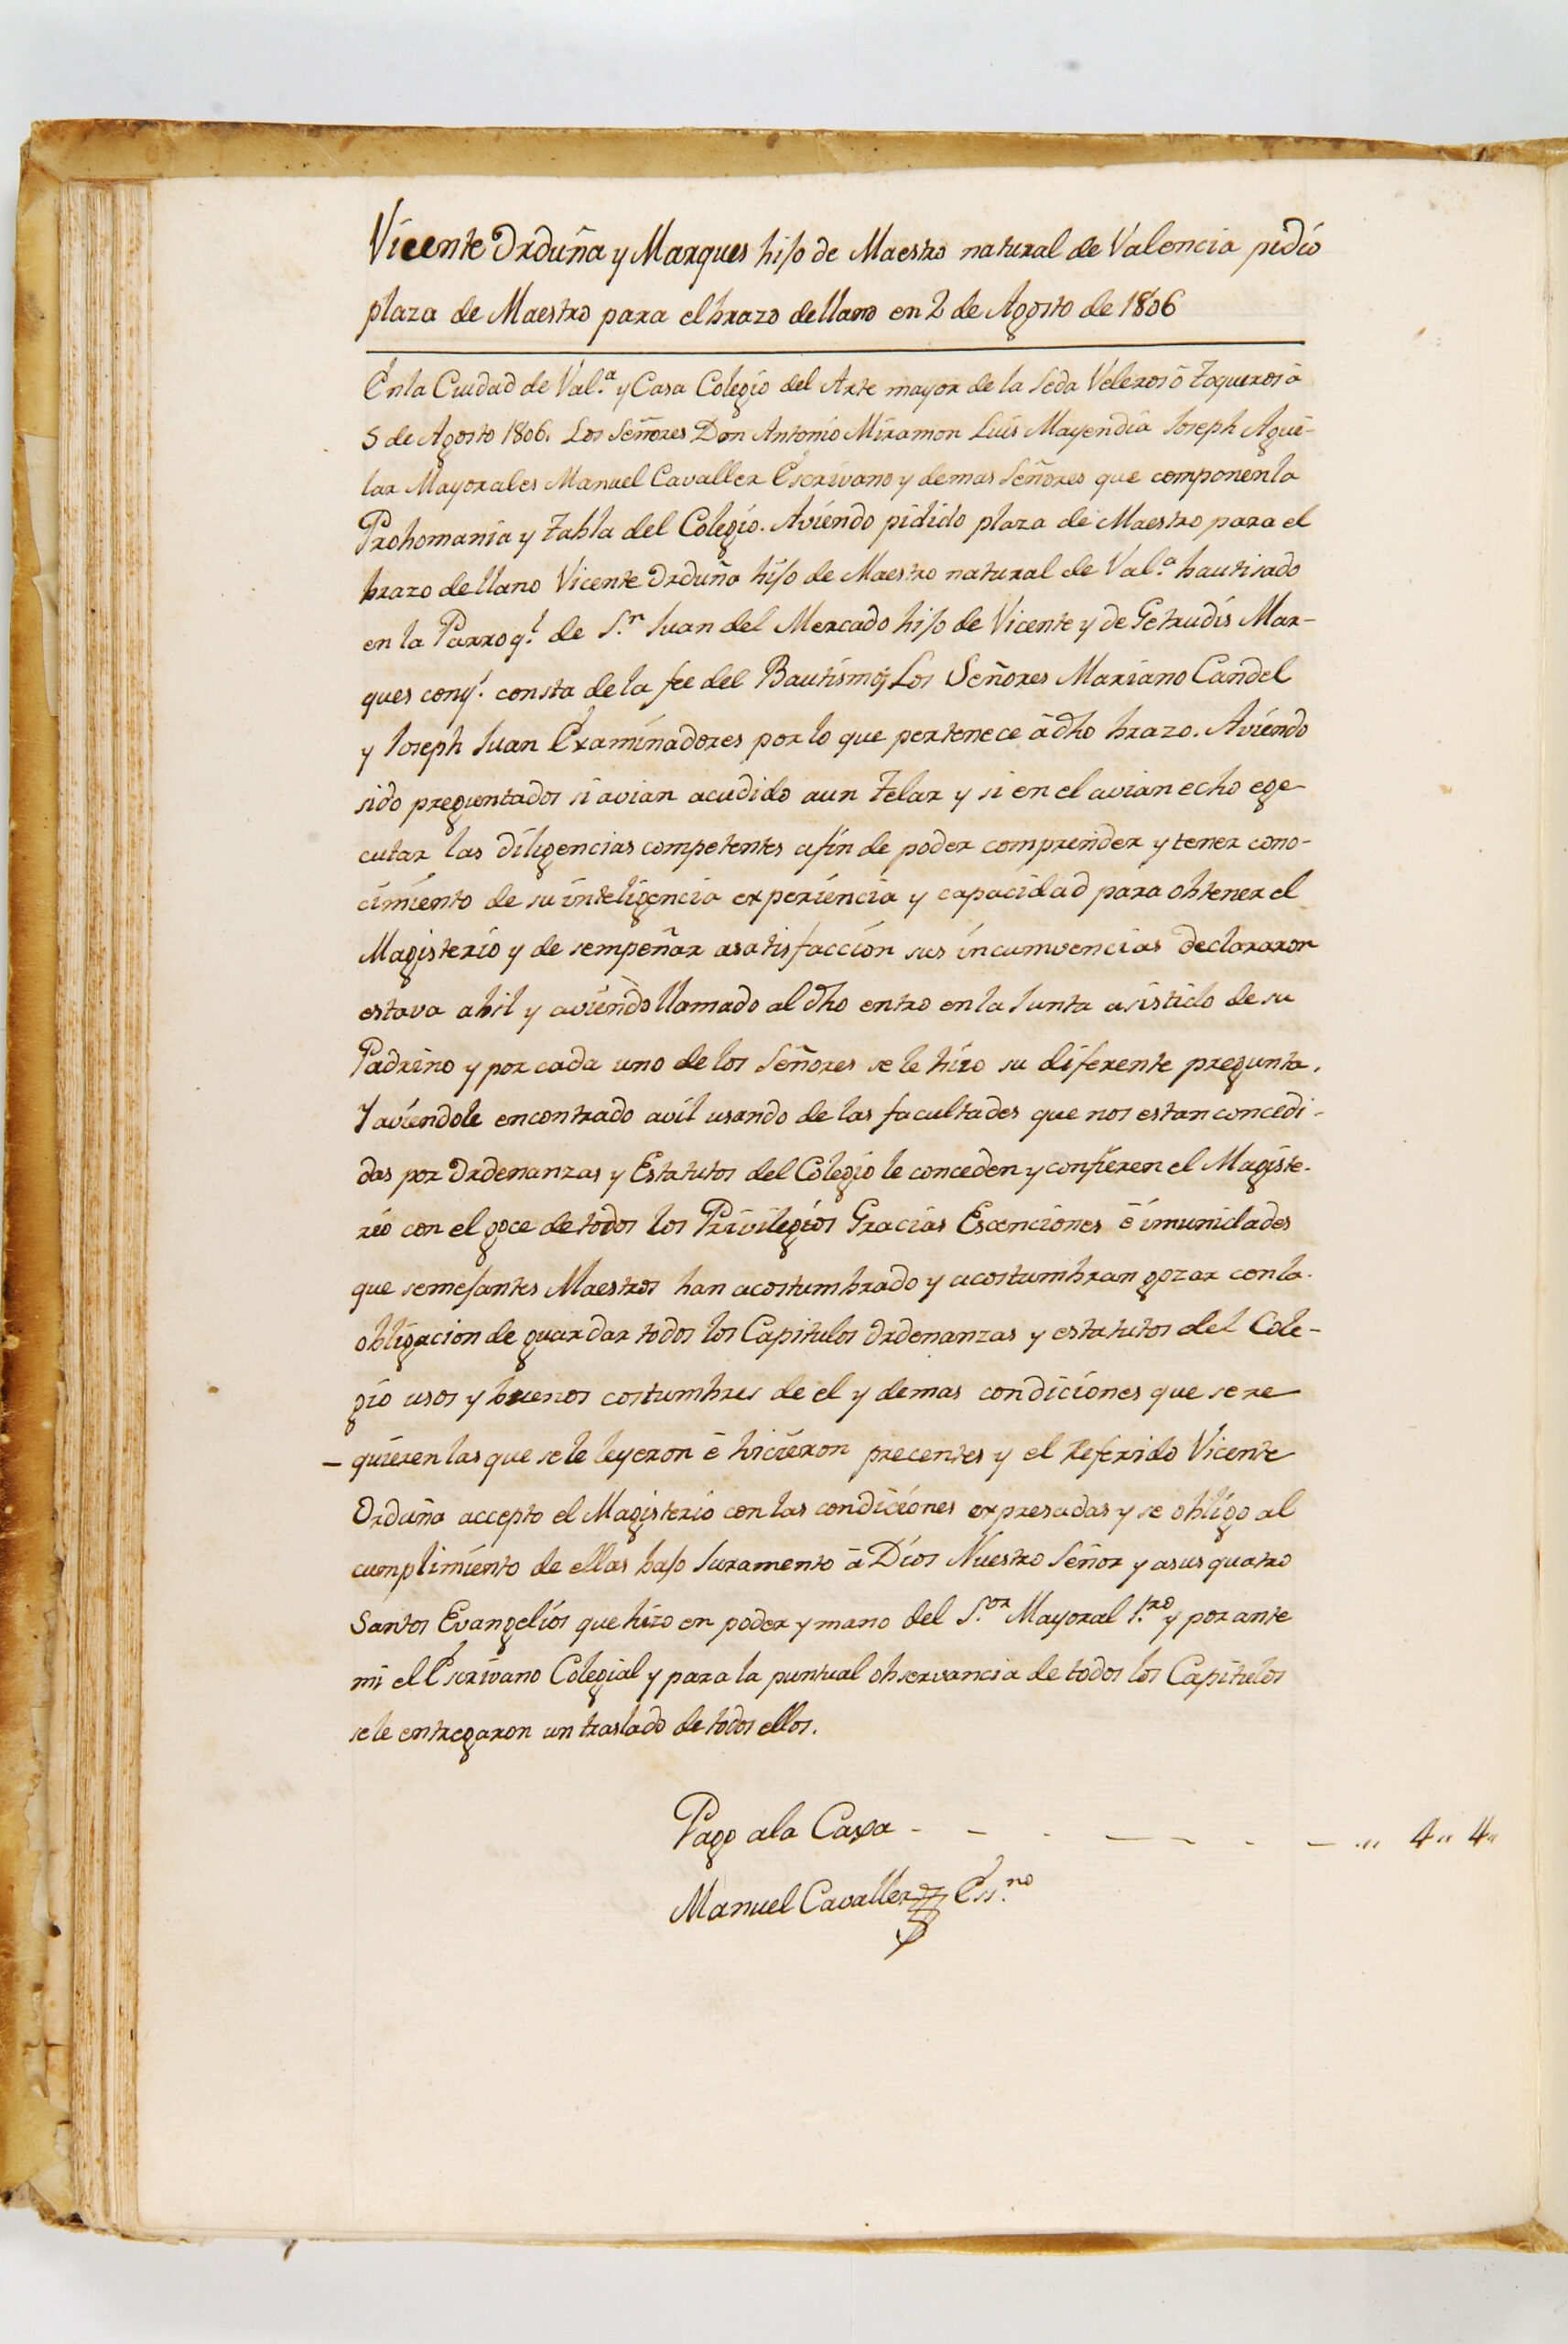 Vicente Orduña y Marques hijo de Maestro natural de Valencia pidio
plaza de Maestro para el brazo de llano en 2 de Agosto de 1806
En la Ciudad de Val.ª y Casa Colegio del Arte mayor de la Seda Veleros ô Toqueros â
5 de Agosto 1806. Los Señores Don Antonio Miramon Luis Mayendia Joseph Agui-
lar Mayorales Manuel Cavaller Escrivano y demas Señores que componen la
Prohomania y Tabla del Colegio. Aviendo pidido plaza de Maestro para el
brazo de llano Vicente Orduña hijo de Maestro natural de Val.ª bautisado
en la Parroq.l de S.n Juan del Mercado hijo de Vicente y de Getrudis Mar-
ques conq.s consta de la fee del Bautismo; Los Señores Mariano Candel
y Joseph Juan Examinadores por lo que pertenece â dho brazo. Aviendo
sido preguntados si avian acudido a un Telar y si en el avian echo ege-
cutar las diligencias competentes afin de poder comprender y tener cono-
cimiento de su inteligencia experiencia y capacidad para obtener el
Magisterio y de sempeñar asatisfacción sus incumvencias declararon
estava abil y aviendo llamado al dho entro en la Junta asistido de su
Padrino y por cada uno de los Señores se le hizo su diferente pregunta.
Y aviendole encontrado avil usando de las facultades que nos estan concedi-
das por Ordenanzas y Estatutos del Colegio le conceden y confieren el Magiste-
rio con el goce de todos los Privilegios Gracias Escenciones ê imunidades
que semejantes Maestros han acostumbrado y acostumbran gozar con la
obligacion de guardar todos los Capitulos Ordenanzas y estatutos del Cole-
gio usos y buenos costumbres de el y demas condiciones que se re
- quieren las que se le leyeron ê hicieron precentes y el Referido Vicente
Orduña accepto el Magisterio con las condiciones expresadas y se obligo al
cumplimiento de ellas bajo Juramento â Dios Nuestro Señor y asus quatro
Santos Evangelios que hizo en poder y mano del S.or Mayoral 1.ro y por ante
mi el Escrivano Colegial y para la puntual observancia de todos los Capitulos
se le entregaron un traslado de todos ellos.
Pago ala Caxa - - - - - - - ... 4" 4"
Manuel Cavaller Ess.no